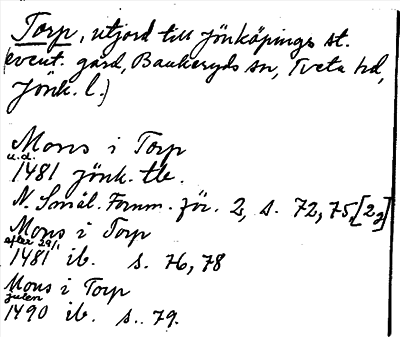 Torp, utjord till Jönköpings st.
(event. gård, Bankeryds sn, Tveta hd,
Jönk. l.)
Mons i Torp
u.d.
1481 Jönk. tb.
N. Smål. Fornm. för. 2, s. 72, 75, [2 2]
Mons i Torp
efter 29/1
1481 ib. s. 76, 78
Mons i Torp
julen
1490 ib. s. 79.